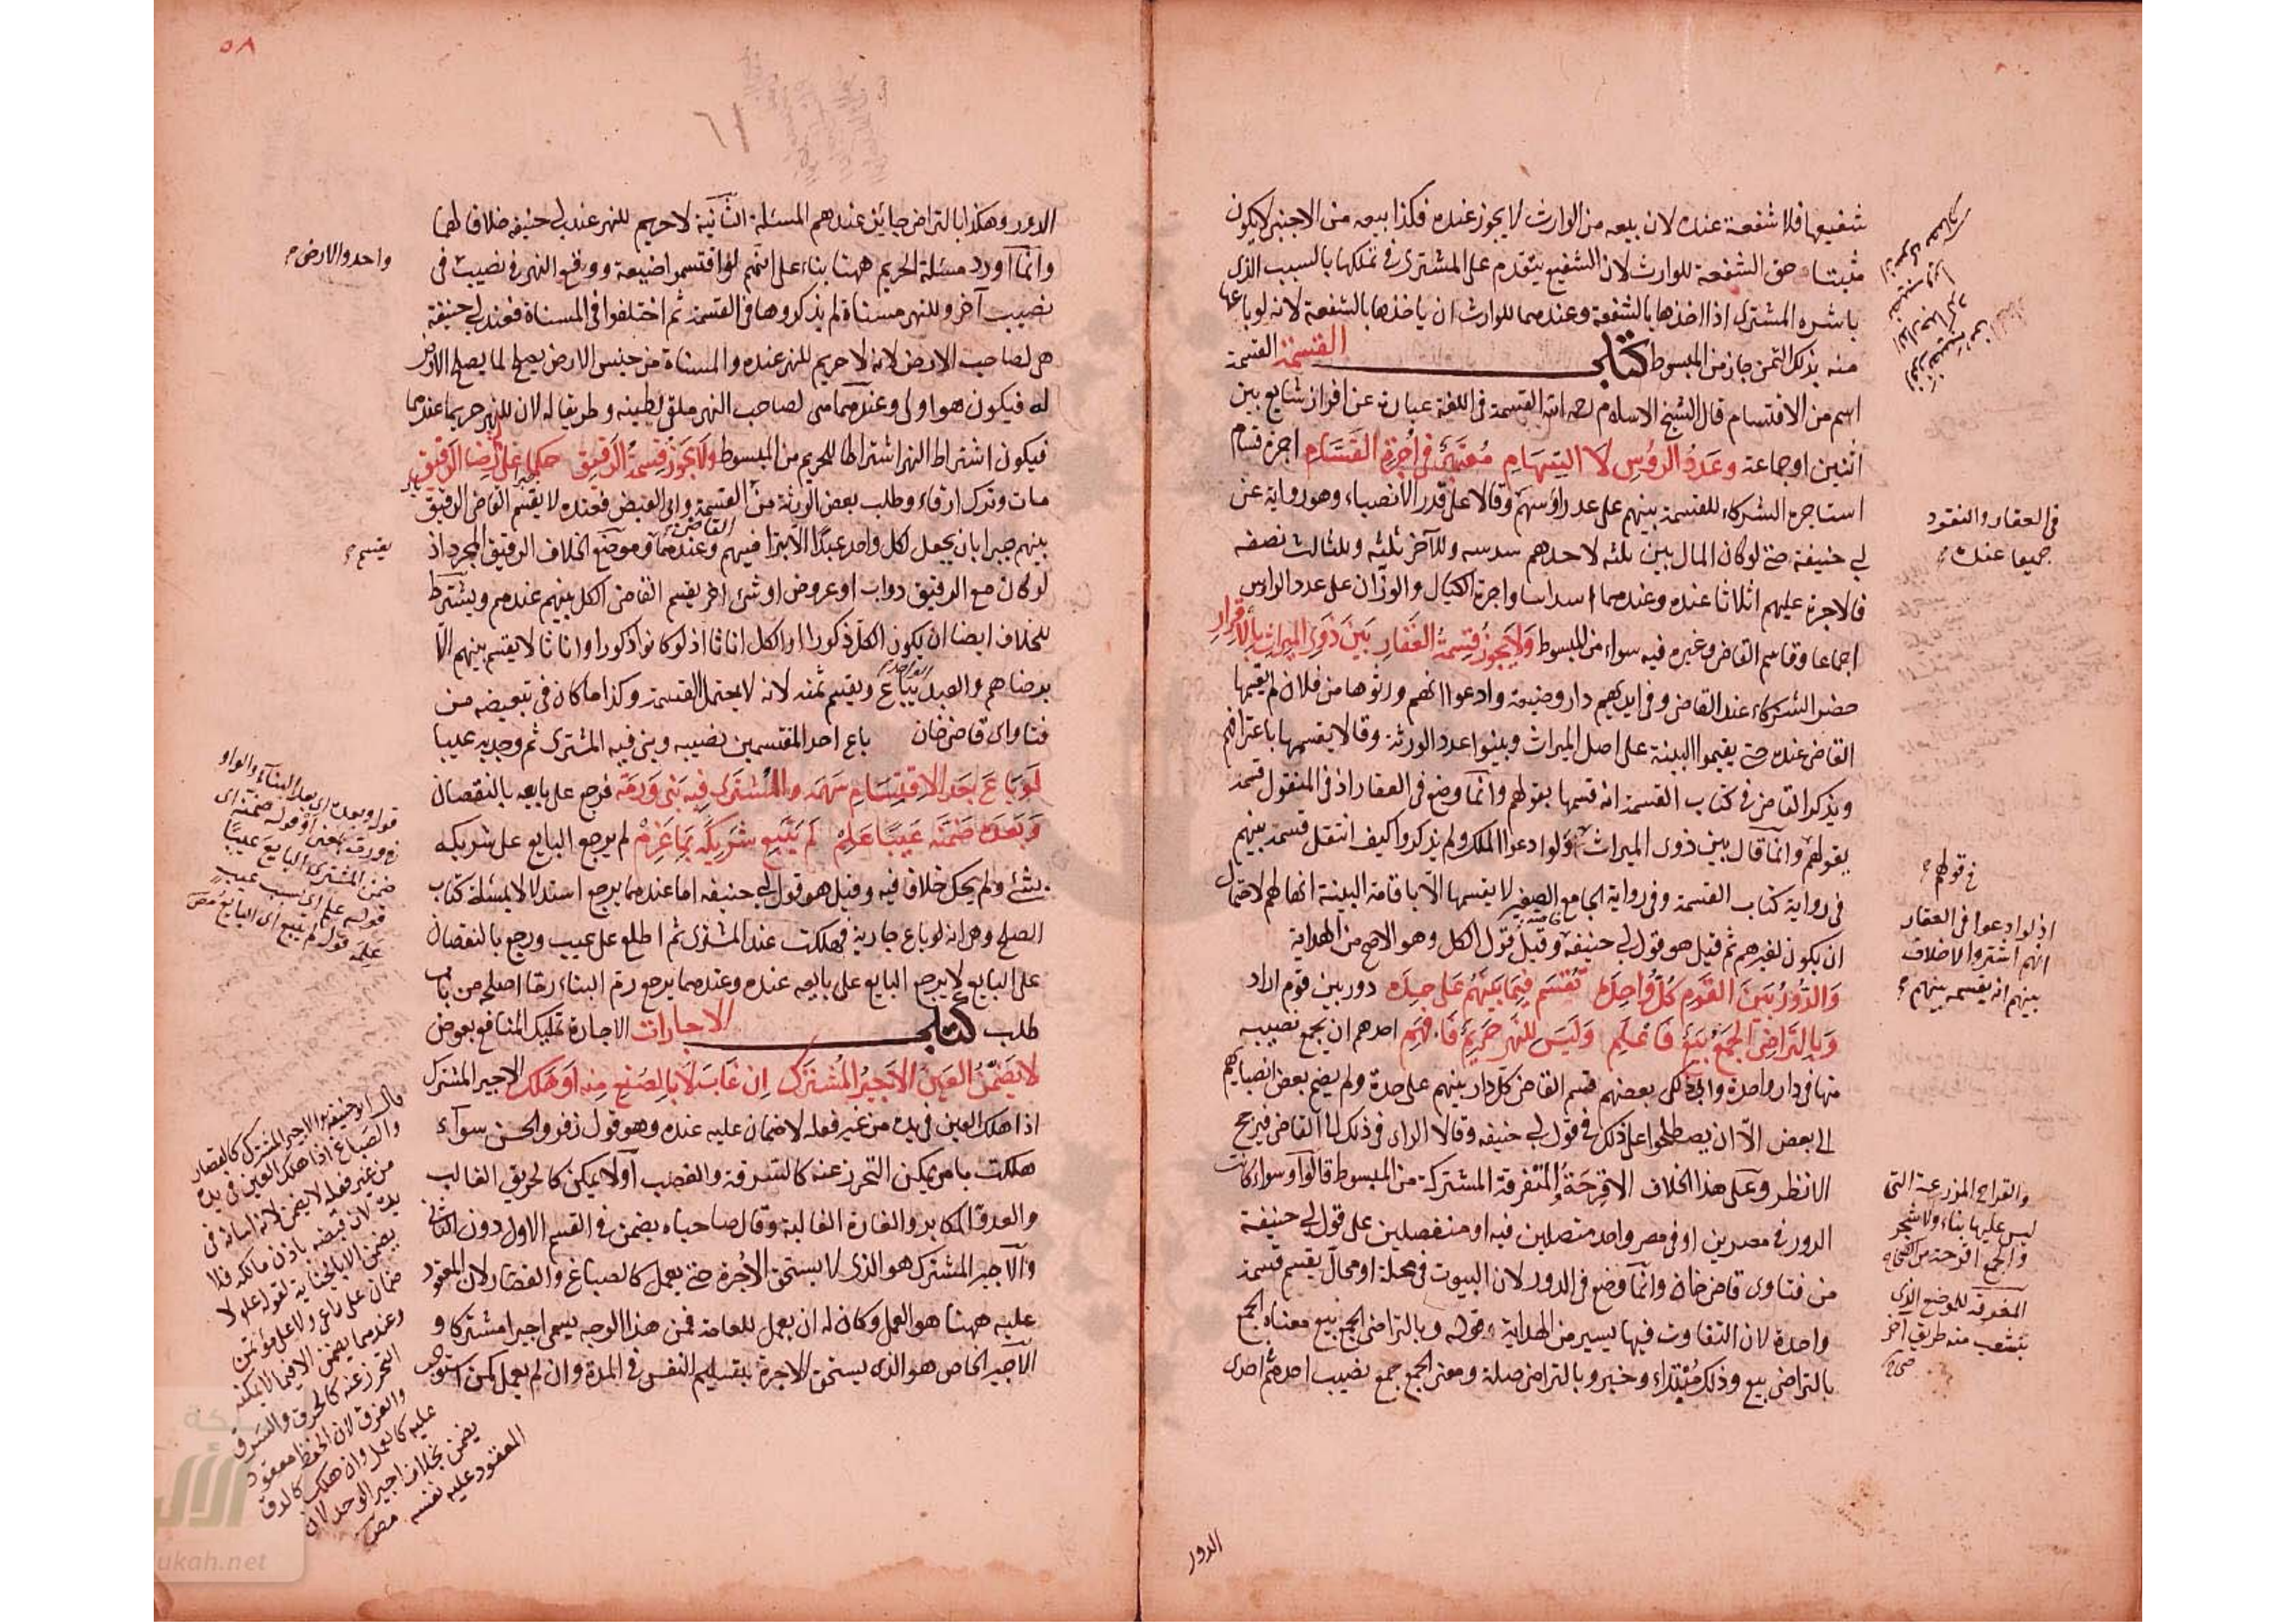 شفيعها فلا شفعة عنده لان بيعه من الوارث لا يجوز عنده فكذا بيعه من الاجنبي لا يكون
مثبتا حق الشفعة للوارث لان الشفيع يتقدم على المشترى في تملكها بالسبب الذى
باشره المشترى اذا اخذها بالشفعة وعندهما للوارث ان ياخذها بالشفعة لانه لو باعها
منه بذلك الثمن جاز من المبسوط كتاب القسمة القسمة
اسم من الاقتسام قال الشيخ الاسلام رحمه الله القسمة في اللغة عبارة عن افراز شايع بين
اثنين او جماعة وعدد الرؤس لا السهام معتبر في اجرة القسام اجرة قسام
استاجره الشركاء للقسمة بينهم على عدد رؤسهم وقالا على قدر الانصباء وهو رواية عن
ابي حنيفة حتى لو كان المال بين ثلثة لاحدهم سدسه وللآخر ثلثه وللثالث نصفه
فالاجرة عليهم اثلاثا عنده وعندهما اسداسا واجرة الكيال والوزان على عدد الرؤس
اجماعا وقاسم القاضى وغيره فيه سواء من المبسوط ولا يجوز قسمة العقار بين ذوى الميراث بالاقرار
حضر الشركاء عند القاضى وفى ايديهم دار وضيعة وادعوا انهم ورثوها من فلان لم يقسمها
القاضى عنده حتى يقيموا البينة على اصل الميراث وبينوا عدد الورثة وقالا يقسمها باعترافهم
ويذكر القاضى فى كتاب القسمة انه قسمها بقولهم وانما وضع فى العقار اذ فى المنقول قسمه
بقولهم وانما قال بين ذوى الميراث ولو ادعوا الملك ولم يذكروا كيف انتقل قسمه بينهم
فى رواية كتاب القسمة وفى رواية الجامع الصغير لا يقسمها الا باقامة البينة انها لهم لاحتمال
ان يكون لغيرهم ثم قيل هو قول ابي حنيفة وقيل قول الكل وهو الاصح من الهداية
والدور بين القوم كل واحدة تقسم فيما بينهم على حدة دور بين قوم اراد
وبالتراضى الجمع بيع فاعلم وليس للنهر حريم فافهم احدهم ان يجمع نصيبه
منها فى دار واحدة وابى ذلك بعضهم قسم القاضى كل دار بينهم على حدة ولم يضم بعض انصبايهم
الى بعض الا ان يصطلحوا على ذلك فى قول ابي حنيفه وقالا الراى فى ذلك الى القاضى فيرجح
الانظر وعلى هذا الخلاف الاقرحة المتفرقة المشتركة من المبسوط قالوا وسواء كانت
الدور فى مصرين او فى مصر واحد متصلين فيه او منفصلين على قول ابي حنيفة
من فتاوى قاضى خان وانما وضع فى الدور لان البيوت فى محلة او محال يقسم قسمة
واحدة لان التفاوت فيها يسير من الهداية قوله وبالتراضى الجمع بيع معناه الجمع
بالتراضى بيع وذلك مبتداء وخبر وبالتراضى صلة ومعنى الجمع جمع نصيب احدهم احدى
فى العقار والنقود
جميعا عنده
فى قولهم
اذ لو ادعوا فى العقار
انهم اشتروا لا خلاف
بينهم انه يقسمه بينهم
والقراح المزرعة التى
ليس عليها بناء ولا شجر
والجمع اقرحة من
المغرب
الدور
٥٨
٦١
الدور وهكذا بالتراضى جائز عندهم المسئلة الثانية لا حريم للنهر عند ابي حنيفه خلافا لهما
وانما اورد مسئلة الحريم ههنا بناء على انهم لو اقتسموا ضيعة ووقع النهر فى نصيب
نصيب آخر وللنهر مسناة لم يذكروها فى القسمة ثم اختلفوا فى المسناة فعند ابي حنيفة
هى لصاحب الارض لانه لا حريم للنهر عنده والمسناة من جنس الارض يصلح لما يصلح الارض
له فيكون هو اولى وعندهما هى لصاحب النهر ملقى لطينه وطريقا له لان للنهر حريما عندهما
فيكون اشتراط النهر اشتراطا للحريم من المبسوط ولا يجوز قسمة الرقيق حكما على رضا الرقيق
مات وترك ارقاء وطلب بعض الورثة من القسمة وابى البعض فعنده لا يقسم القاضى الرقيق
بينهم جبرا بان يجعل لكل واحد عبدا الا بتراضيهم وعندهما وموضع الخلاف الرقيق المجرد اذ
لو كان مع الرقيق دواب او عروض او شئ اخر يقسم القاضى الكل بينهم عندهم ويشترط
للخلاف ايضا ان يكون الكل ذكورا او الكل اناثا اذ لو كانوا ذكورا واناثا لا يقسم بينهم الا
برضاهم والعبد الواحد يباع ويقسم ثمنه لانه لا يحتمل القسمة وكذا ما كان فى تبعيضه من
فتاواى قاضى خان باع احد المقتسمين نصيبه وبنى فيه المشترى ثم وجد به عيبا
لو باع بعد الاقتسام سهمه والمشترى فيه بنى ورمه فرجع على بايعه بالنقصان
وبعده ضمنه عيبا علم لم يتبع شريكه بما غرم لم يرجع البايع على شريكه
بشئ ولم يحك خلاف فيه وقيل هو قول ابي حنيفه اما عندهما يرجع استدلالا بمسئلة كتاب
الصلح وهى انه لو باع جارية فهلكت عند المشترى ثم اطلع على عيب ورجع بالنقصان
على البايع لا يرجع البايع على بايعه عنده وعندهما يرجع رم البناء رما اصلحه من باب
طلب كتاب الاجارات الاجارة تمليك المنافع بعوض
لا يضمن العين الاجير المشترك ان غاب لا بالصنع منه او هلك الاجير المشترك
اذا هلك العين فى يده من غير فعله لا ضمان عليه عنده وهو قول زفر والحسن سواء
هلكت بامر يمكن التحرز عنه كالسرقة والغصب اولا يمكن كالحريق الغالب
والعدو المكابر والغارة الغالبة وقال صاحباه يضمن فى القسم الاول دون الثانى
والاجير المشترك هو الذى لا يستحق الاجرة حتى يعمل كالصباغ والقصار لان المعقود
عليه ههنا هو العمل وكان له ان يعمل للعامة فمن هذا الوجه يسمى اجيرا مشتركا و
الاجير الخاص هو الذى يستحق الاجرة بتسليم النفس فى المدة وان لم يعمل كمن استوجر
واحد والارض
يقسم
قوله وبعده اى بعد البناء والواو
ضمن المشترى البايع عيبا
قال ابو حنيفة الاجير المشترك كالقصار
والصباغ اذا هلك العين فى يده
من غير فعله لا يضمن لانه امانة فى
يده لان قبضه باذن مالكه فلا
يضمن الا بالجناية لقوله عم لا
ضمان على راعى ولا على مؤتمن
وعندهما يضمن الا فيما لا يمكنه
التحرز عنه كالحرق والسرق
والغرق لان الحفظ معقود
عليه كالعمل وان هلك كالدق
يضمن بخلاف اجير الوحد لان
المعقود عليه نفسه
ukah.net